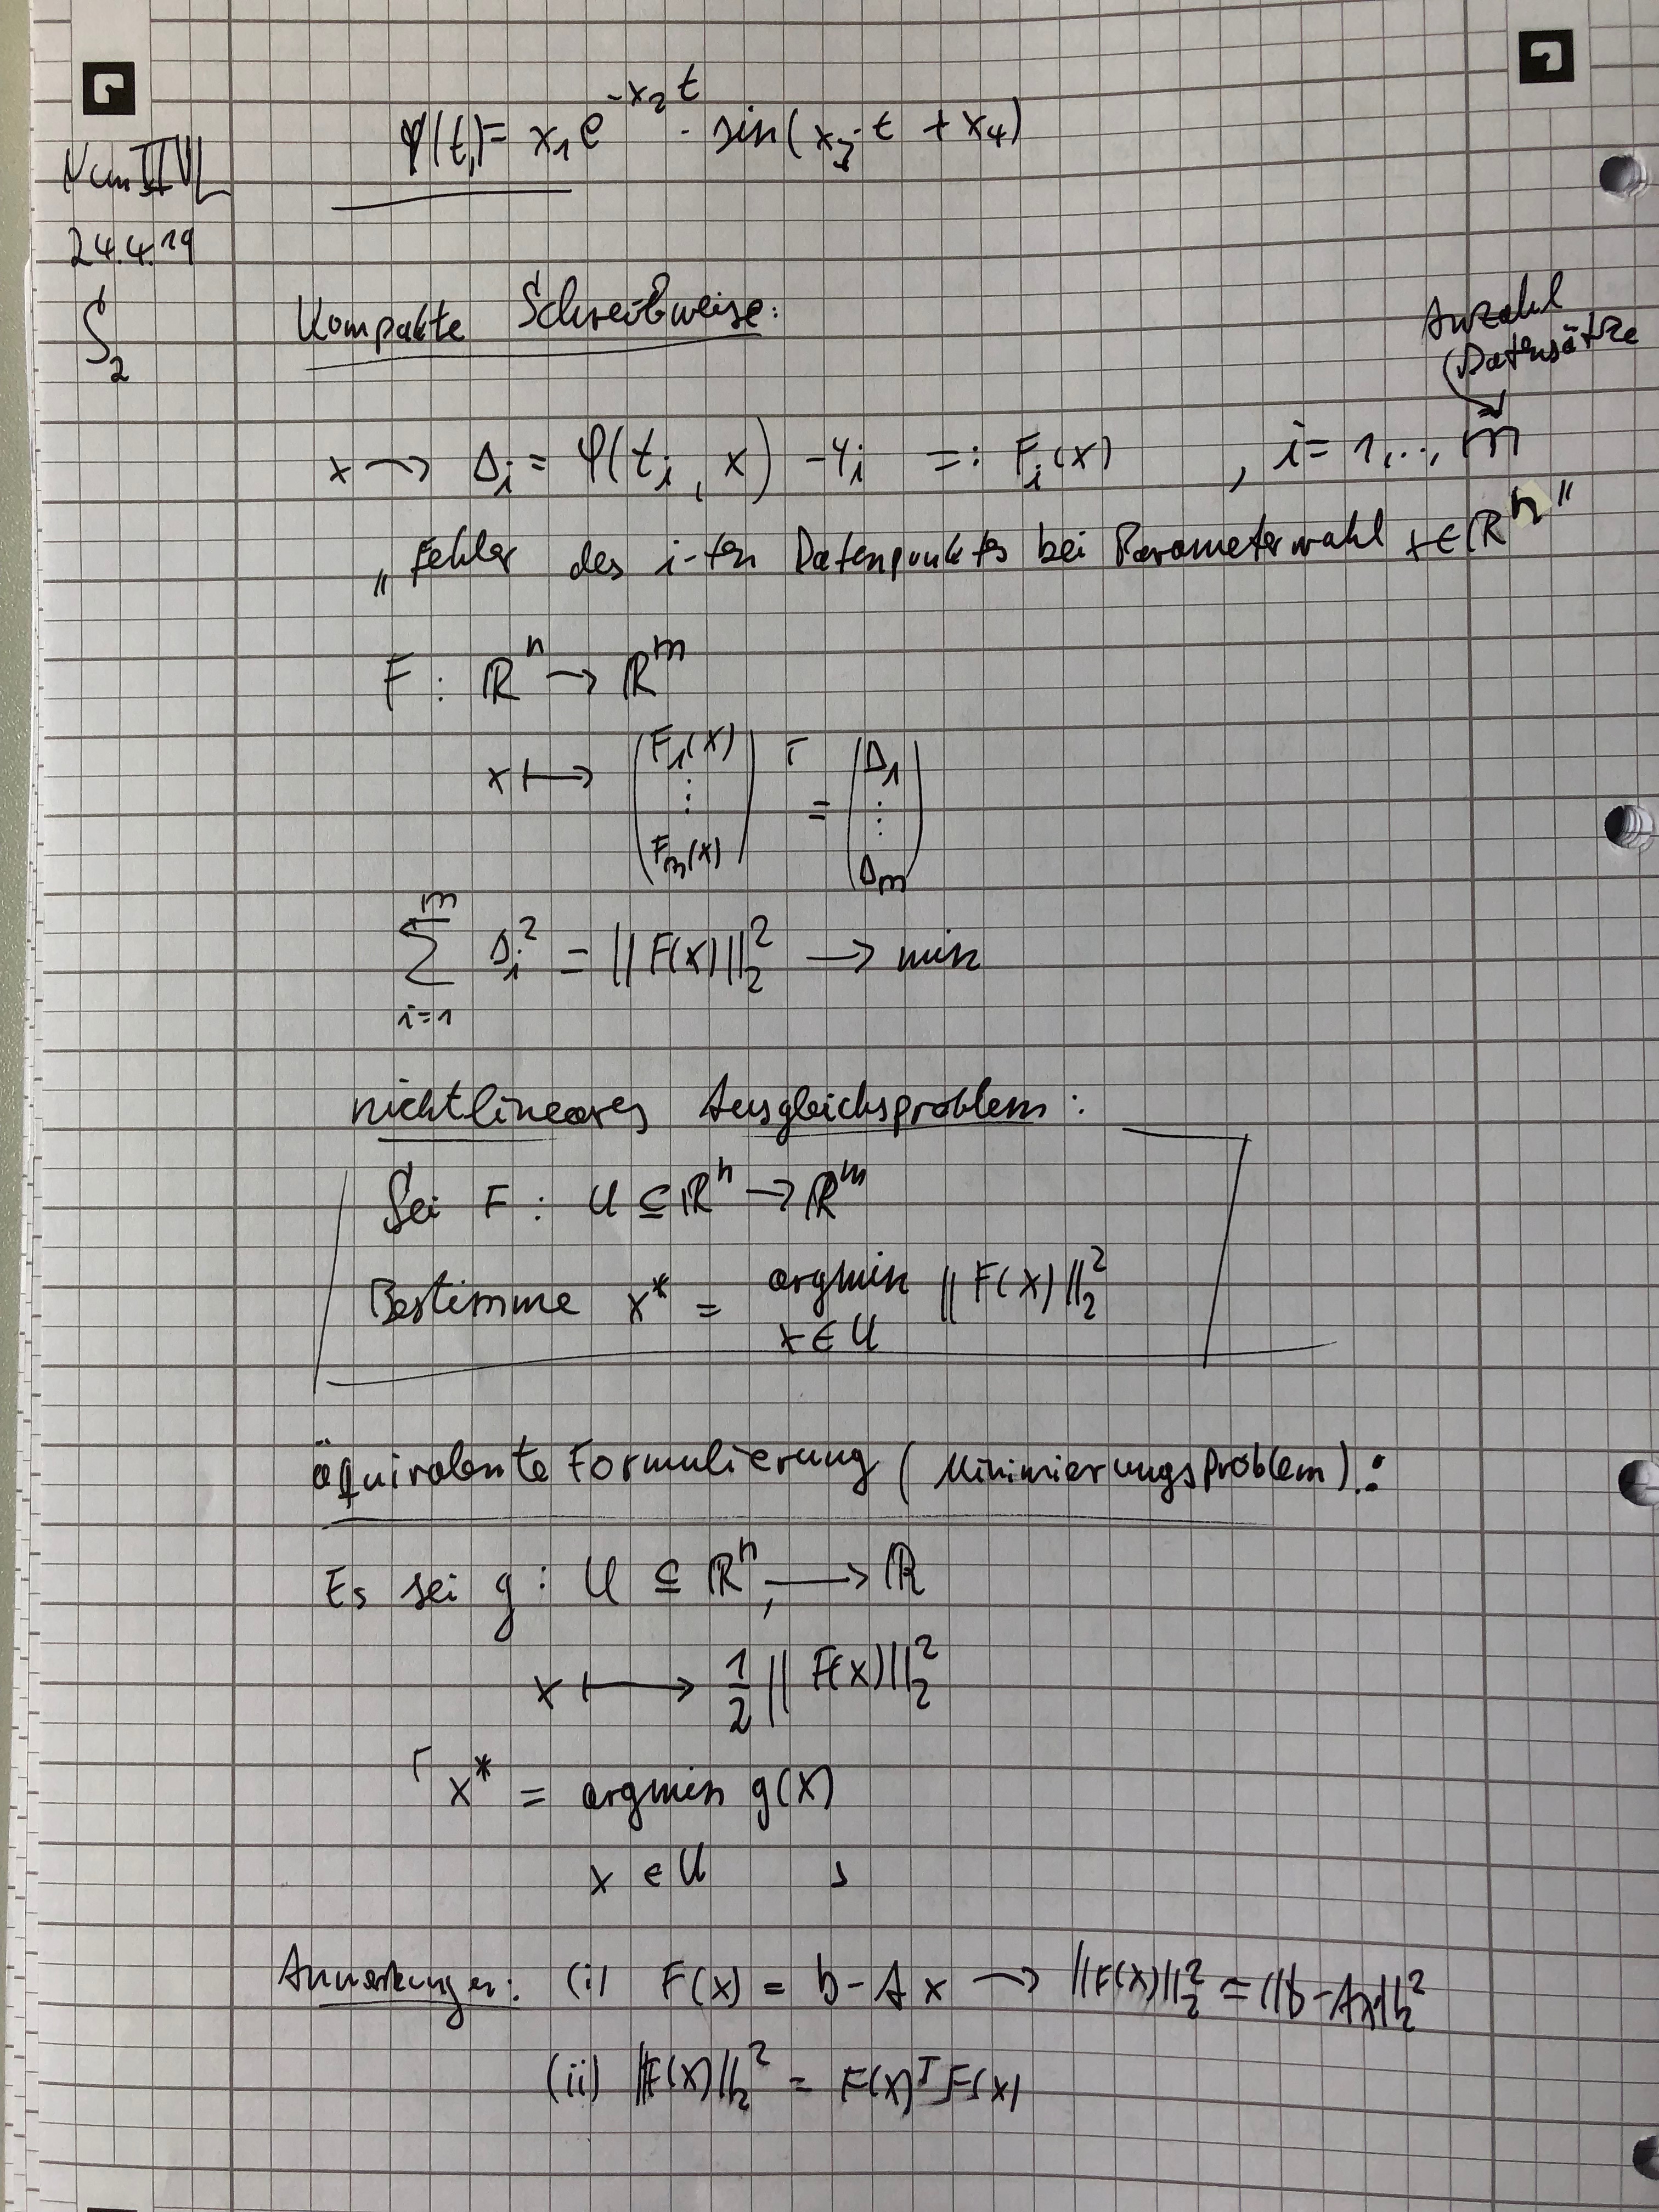 φ(t,) = x₁ e^{-x₂ t} · sin(x₃·t + x₄)
Num II VL
24.4.19
S2
Kompakte Schreibweise:
Anzahl
Datensätze
x → Δᵢ = φ(tᵢ, x) - yᵢ =: Fᵢ(x) , i = 1,..., m
„Fehler des i-ten Datenpunktes bei Parameterwahl x ∈ ℝⁿ"
F : ℝⁿ → ℝᵐ
x ↦ (F₁(x) ⋮ Fₘ(x)) = (Δ₁ ⋮ Δₘ)
∑_{i=1}^{m} Δᵢ² = ||F(x)||₂² → min
nichtlineares Ausgleichsproblem:
Sei F : U ⊆ ℝⁿ → ℝᵐ
Bestimme x* = argmin ||F(x)||₂²
x ∈ U
äquivalente Formulierung (Minimierungsproblem):
Es sei g : U ⊆ ℝⁿ, → ℝ
x ↦ 1/2 ||F(x)||₂²
x* = argmin g(x)
x ∈ U
Anmerkungen: (i) F(x) = b - A x → ||F(x)||₂² = ||b - Ax||₂²
(ii) ||F(x)||₂² = F(x)ᵀ F(x)